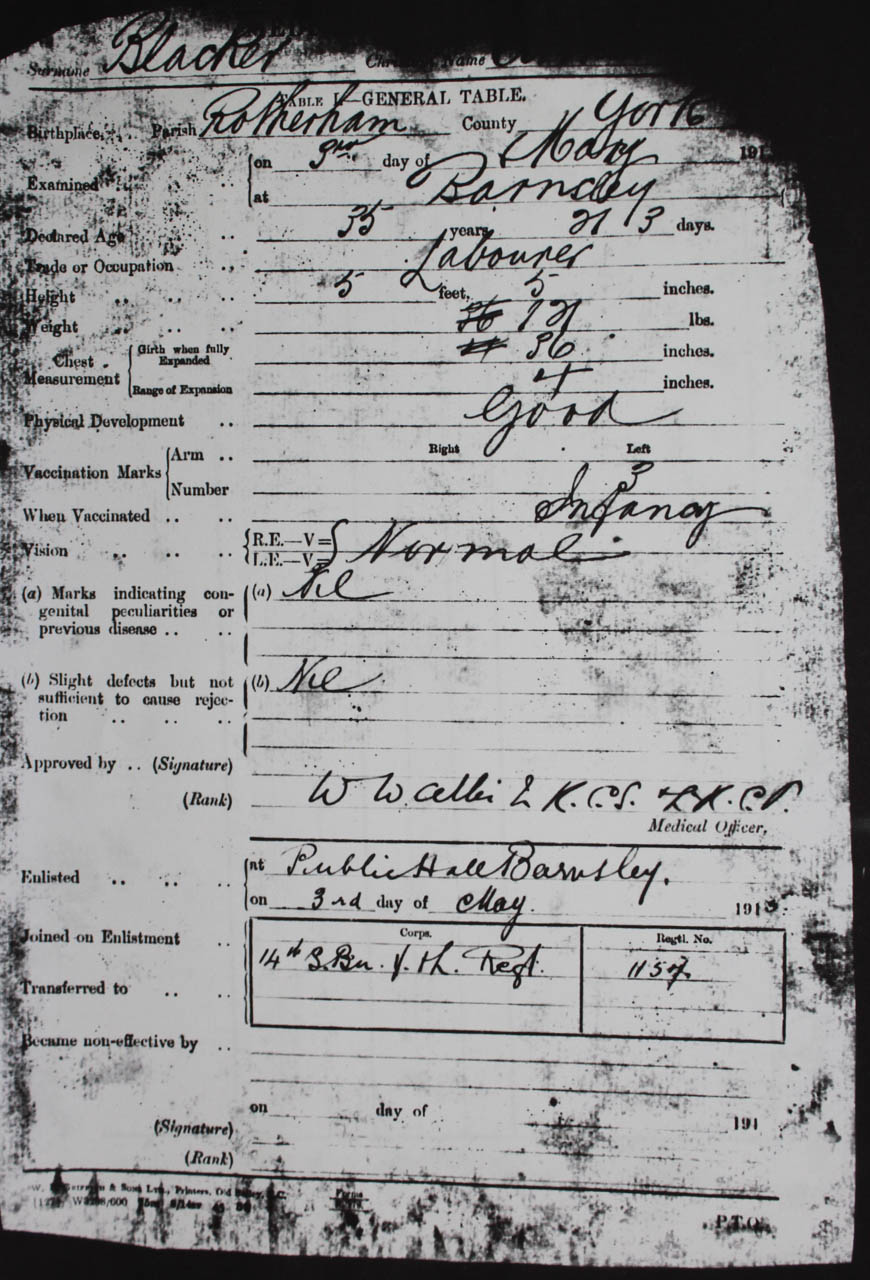 Surname Blacker Christian Name
TABLE I.—GENERAL TABLE.
Birthplace .. Parish Rotherham County York
Examined .. {on 3rd day of May 191
at Barnsley
Declared Age .. 35 years 21 3 days.
Trade or Occupation .. Labourer
Height .. .. .. 5 feet, 5 inches.
Weight .. .. .. 121 lbs.
Chest Measurement {Girth when fully Expanded 36 inches.
Range of Expansion 4 inches.
Physical Development .. Good
Right Left
Vaccination Marks {Arm ..
Number 3
When Vaccinated .. .. Infancy
Vision .. .. .. {R.E.—V= L.E.—V= } Normal
(a) Marks indicating con- (a) Nil
genital peculiarities or
previous disease .. ..
(b) Slight defects but not (b) Nil
sufficient to cause rejec-
tion .. .. ..
Approved by .. (Signature)
(Rank) W W
Medical Officer.
Enlisted .. .. .. {at Public Hall Barnsley.
on 3rd day of May. 191
Corps. Regtl. No.
Joined on Enlistment .. 14th S. Bn. Y. & L. Regt. 1157
Transferred to .. ..
Became non-effective by ..
on day of 191
(Signature)
(Rank)
& Sons Ltd., Printers, Old Bailey, E.C. Forms
P.T.O.